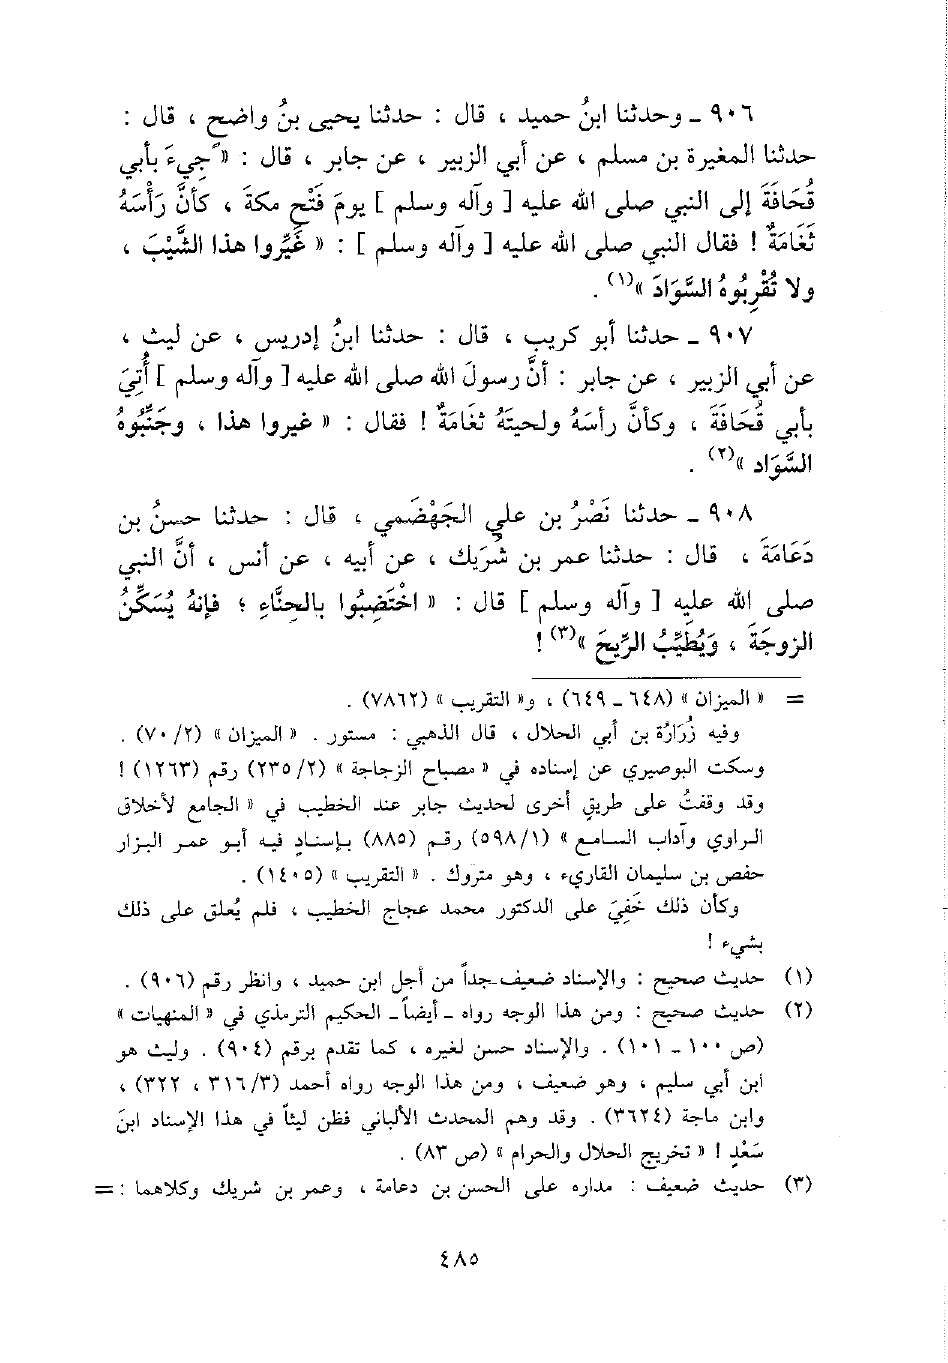 ٩٠٦ ـ وحدثنا ابنُ حميد ، قال : حدثنا يحيى بنُ واضح ، قال :
حدثنا المغيرة بن مسلم ، عن أبي الزبير ، عن جابر ، قال : « جِيءَ بأبي
قُحَافَةَ إلى النبي صلى الله عليه [ وآله وسلم ] يومَ فَتْحِ مكةَ ، كأنَّ رَأْسَهُ
ثَغَامَةٌ ! فقال النبي صلى الله عليه [ وآله وسلم ] : « غَيِّروا هذا الشَّيْبَ ،
ولا تُقْرِبُوهُ السَّوَادَ »(١) .
٩٠٧ ـ حدثنا أبو كريب ، قال : حدثنا ابنُ إدريس ، عن ليث ،
عن أبي الزبير ، عن جابر : أنَّ رسولَ الله صلى الله عليه [ وآله وسلم ] أُتِيَ
بأبي قُحَافَةَ ، وكأنَّ رأسَهُ ولحيتَهُ ثغامَةٌ ! فقال : « غيروا هذا ، وجَنِّبُوهُ
السَّوَاد »(٢) .
٩٠٨ ـ حدثنا نَصْرُ بن علي الجَهْضَمي ، قال : حدثنا حسنُ بن
دَعَامَةَ ، قال : حدثنا عمر بن شَرَيك ، عن أبيه ، عن أنس ، أنَّ النبي
صلى الله عليه [ وآله وسلم ] قال : « اخْتَضِبُوا بالحِنَّاءِ ؛ فإنهُ يُسَكِّنُ
الزوجَةَ ، وَيُطَيِّبُ الرِّيحَ »(٣)!
= « الميزان » (٦٤٨ ـ ٦٤٩) ، و« التقريب » (٧٨٦٢) .
وفيه زُرَارَة بن أبي الحلال ، قال الذهبي : مستور . « الميزان » (٧٠/٢) .
وسكت البوصيري عن إسناده في « مصباح الزجاجة » (٢٣٥/٢) رقم (١٢٦٣) !
وقد وقفتُ على طريقٍ أخرى لحديث جابر عند الخطيب في « الجامع لأخلاق
الراوي وآداب السامع » (٥٩٨/١) رقم (٨٨٥) بإسنادٍ فيه أبو عمر البزار
حفص بن سليمان القاريء ، وهو متروك . « التقريب » (١٤٠٥) .
وكأن ذلك خَفِيَ على الدكتور محمد عجاج الخطيب ، فلم يُعلق على ذلك
بشيء !
(١) حديث صحيح : والإسناد ضعيف جداً من أجل ابن حميد ، وانظر رقم (٩٠٦) .
(٢) حديث صحيح : ومن هذا الوجه رواه ـ أيضاً ـ الحكيم الترمذي في « المنهيات »
(ص ١٠٠ ـ ١٠١) . والإسناد حسن لغيره ، كما تقدم برقم (٩٠٤) . وليث هو
ابن أبي سليم ، وهو ضعيف ، ومن هذا الوجه رواه أحمد (٣١٦/٣ ، ٣٢٢) ،
وابن ماجة (٣٦٢٤) . وقد وهم المحدث الألباني فظن ليثاً في هذا الإسناد ابنَ
سَعْدٍ ! « تخريج الحلال والحرام » (ص ٨٣) .
(٣) حديث ضعيف : مداره على الحسن بن دعامة ، وعمر بن شريك وكلاهما : =
٤٨٥